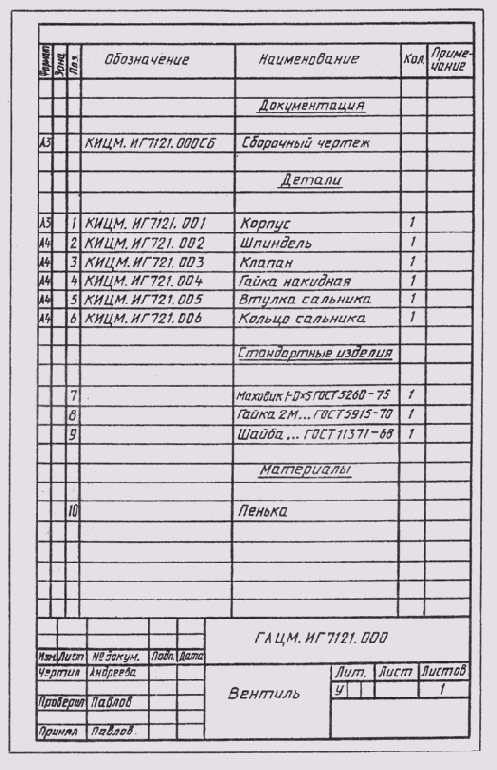 Формат Зона Поз. Обозначение Наименование Кол. Приме-
чание
Документация
А3 КИЦМ. ИГ7121. 000СБ Сборочный чертеж
Детали
А3 1 КИЦМ. ИГ7121. 001 Корпус 1
А4 2 КИЦМ. ИГ721. 002 Шпиндель 1
А4 3 КИЦМ. ИГ721. 003 Клапан 1
А4 4 КИЦМ. ИГ721. 004 Гайка накидная 1
А4 5 КИЦМ. ИГ721. 005 Втулка сальника 1
А4 6 КИЦМ. ИГ721. 006 Кольцо сальника 1
Стандартные изделия
7 Маховик 1-D×5 ГОСТ 5260-75 1
8 Гайка 2М... ГОСТ 5915-70 1
9 Шайба ... ГОСТ 11371-68 1
Материалы
10 Пенька
ГАЦМ. ИГ7121. 000
Изм. Лист № докум. Подп. Дата
Чертил Андреева
Проверил Павлов
Принял Павлов.
Вентиль
Лит. Лист Листов
У 1